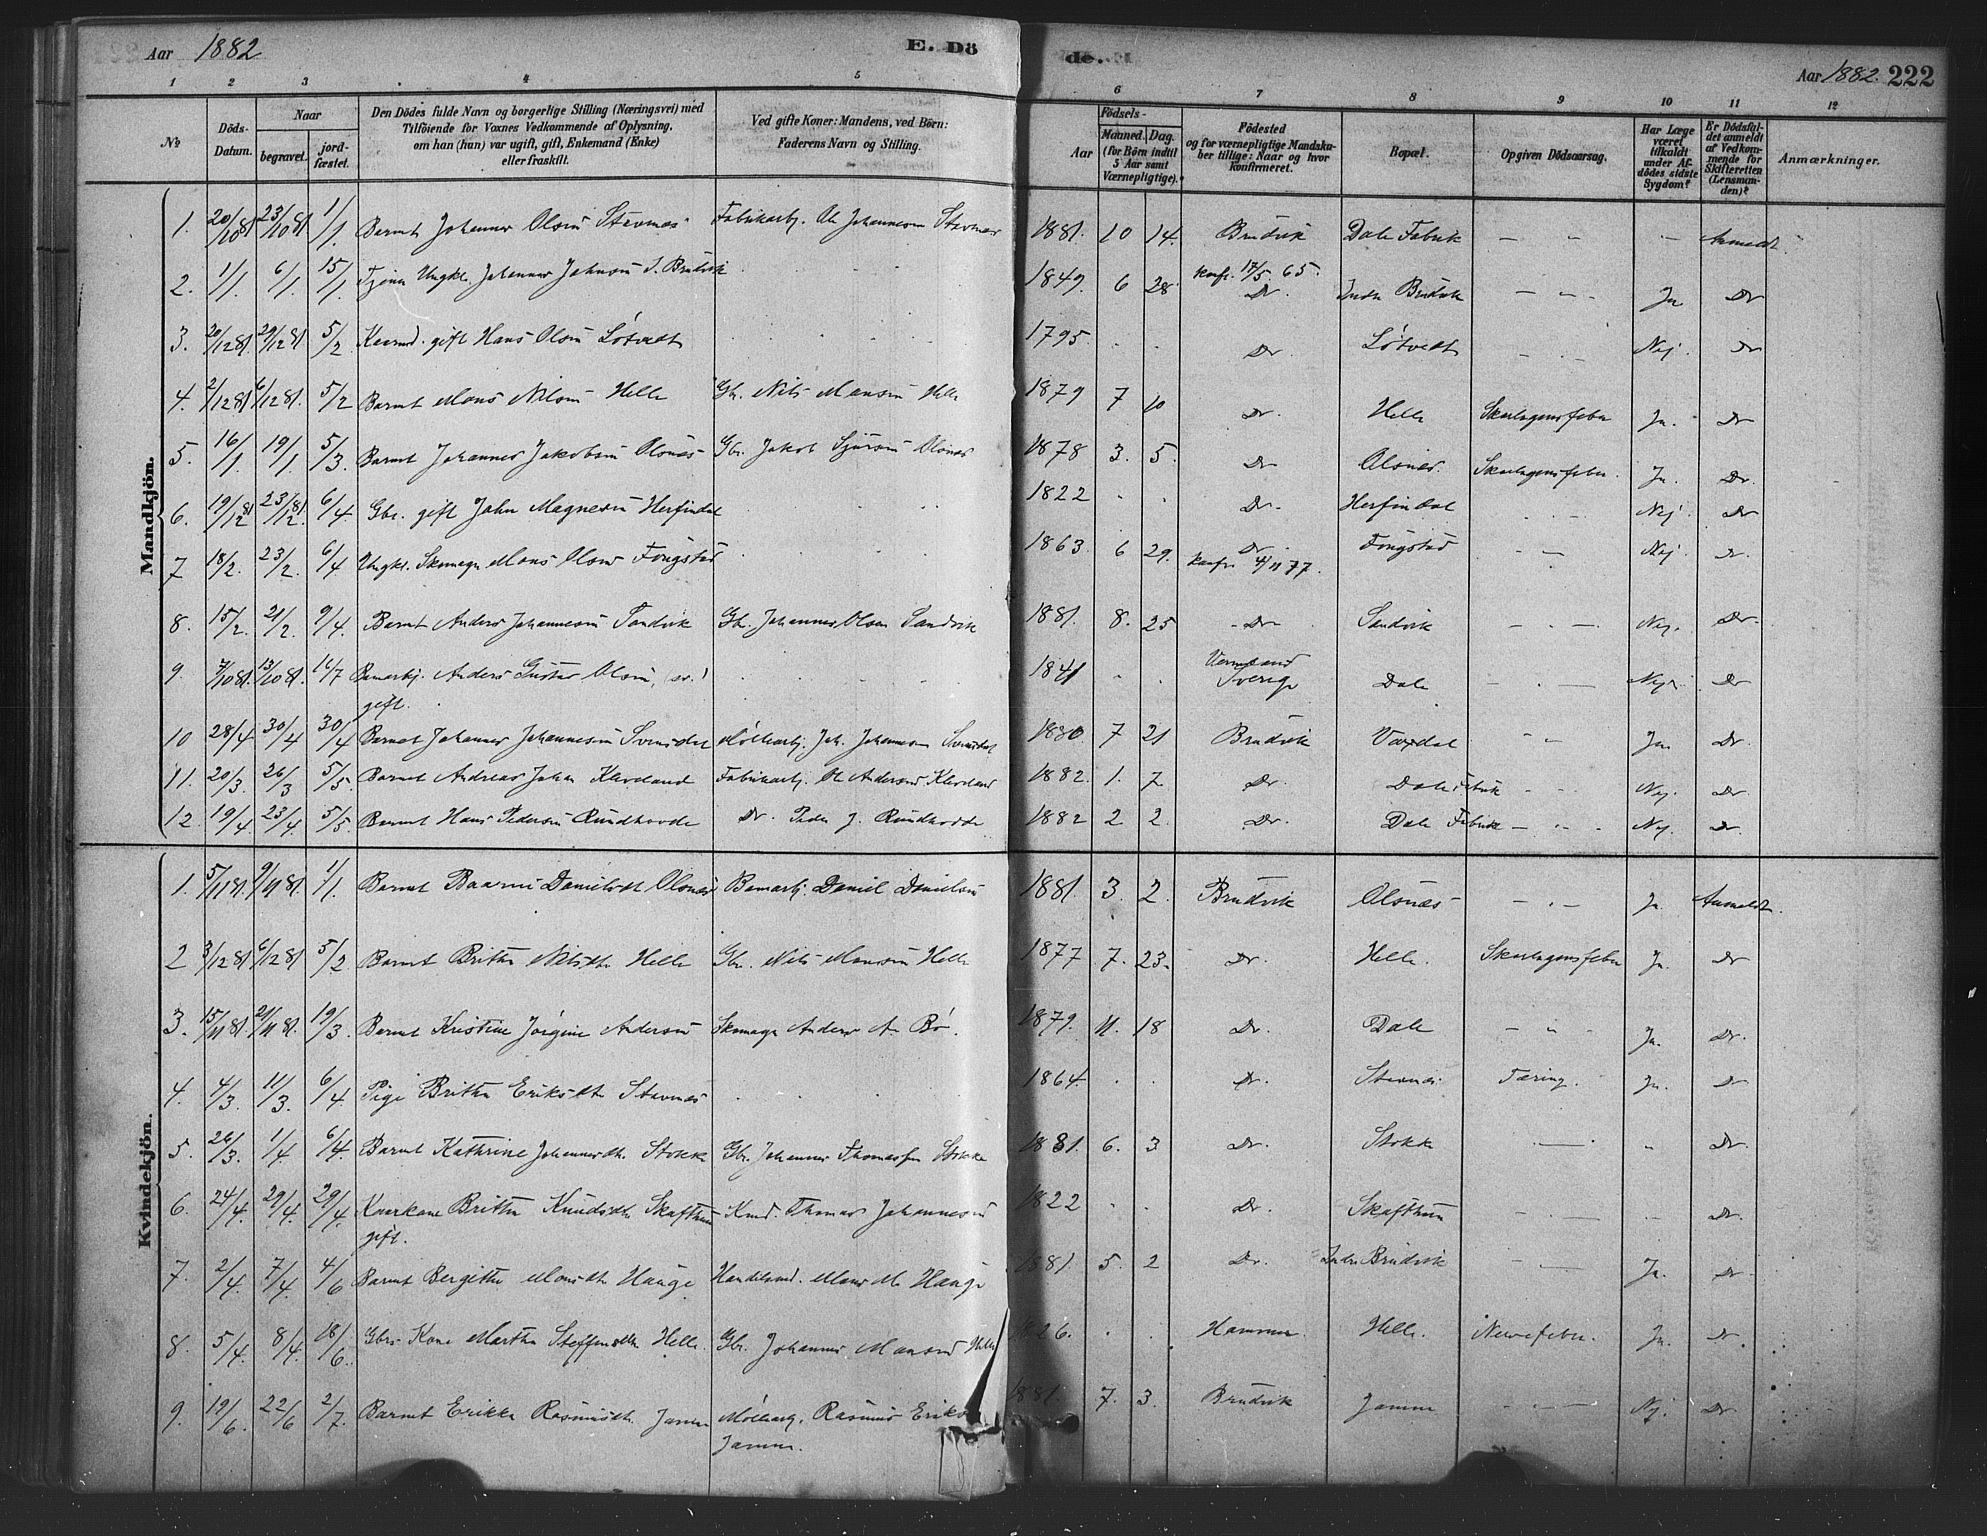 Aar 1882
E. Dö
de.
Aar 1882. 222
1 2 3 4 5 6 7 8 9 10 11 12
No
Döds-Datum.
Naar
begravet.
jord-fæstet.
Den Dödes fulde Navn og borgerlige Stilling (Næringsvei) med
Tilföiende for Voxnes Vedkommende af Oplysning,
om han (hun) var ugift, gift, Enkemand (Enke)
eller fraskilt.
Ved gifte Koner: Mandens, ved Börn:
Faderens Navn og Stilling.
Födsels-
Aar
Maaned. Dag.
(for Börn indtil
5 Aar samt
Værnepligtige).
Födested
og for værnepligtige Mandska-
ber tillige: Naar og hvor
konfirmeret.
Bopæl.
Opgiven Dödsaarsag.
Har Læge
været
tilkaldt
under Af-
dödes sidste
Sygdom?
Er Dödsfal-
det anmeldt
af Vedkom-
mende for
Skifteretten
(Lensman-
den)?
Anmærkninger.
Mandkjön.
1. 20/10 81 23/10 81 1/1 Barnet Johannes Olsen Stavnæs Fabrikarb. Ole Johannesen Stavnæs 1881. 10 14. Brudvik Dale Fabrik - - - Anmeldt.
2. 1/1. 6/1. 15/1. Tjener Ungkl. Johannes Johnsen I. Brudvik 1849. 6 28. konf. 17/5 65. Do. Indre Brudvik - - Ja Do
3. 20/12 81 29/12 81 5/2 Kaarmd. gift Hans Olsen Løtvedt 1795. Do. Løtvedt Nej. Do
4. 2/12 81 6/12 81. 5/2 Barnet Mons Nilsen Helle Gbr. Nils Monsen Helle 1879 7 10 Do. Helle Skarlagensfeber Ja. Do
5. 16/1. 19/1 5/3. Barnet Johannes Jakobsen Olsnæs Gbr. Jakob Sjursen Olsnæs 1878 3. 5. Do Olsnæs. Skarlagensfeber. Ja. Do.
6. 19/12 81 23/12 81. 6/4. Gbr. gift John Magnesen Herfindal 1822 Do. Herfindal Nej. Do
7 18/2. 23/2. 6/4 Ungkl. Skomager Mons Olsen Fougstad 1863. 6 29. Do. konf. 4/11 77. Fougstad Nej Do.
8. 15/2. 21/2. 9/4. Barnet Anders Johannesen Sandvik Gbr. Johannes Olsen Sandvik 1881. 8. 25 Do Sandvik Nej. Do.
9. 7/10 81. 13/10 81. 16/7 Anders Gustav Olsen, (sv.) 1841 Vermland Sverige Dale Nej. Do
gift.
10 28/4 30/4 30/4 Barnet Johannes Johannesen Joh. Johannesen 1880 7 21 Brudvik Vaxdal Ja Do.
11. 20/3. 26/3 5/5. Barnet Andreas Johan Kleveland Fabrikarb. Ol Andersen Kleveland 1882. 1. 7 Do. Dale Fabrik Nej. Do
12. 19/4. 23/4. 5/5. Barnet Hans Pedersen Rundhovde Do. Peder J. Rundhovde 1882 2 2. Do. Dale Fabrik Nej. Do
Kvindekjön.
1. 5/11 81. 9/11 81. 1/1. Barnet Danielsdt. Olsnæs Daniel Danielsen 1881. 3. 2. Brudvik Olsnæs Ja Anmeldt.
2 3/12 81 6/12 81 5/2 Barnet Britha Nilsdtr. Helle Gbr. Nils Monsen Helle 1877 7. 23. Do. Helle. Skarlagensfeber Ja. Do
3. 15/11 81. 21/11 81. 19/3. Barnet Kristine Jørgine Andersen Skomager Anders A. Bø. 1879. 11. 18 Do. Dale Ja. Do.
4. 4/3. 11/3. 6/4 Pige Britha Eriksdtr Stavnæs 1864. Do. Stavnæs. Tæring. Ja. Do
5. 26/3. 1/4 6/4. Barnet Kathrine Johannesdtr. Stokke Gbr. Johannes Thomassen Stokke 1881. 6. 3 Do. Stokke Do.
6. 24/4. 29/4. 29/4. Kaarkone Britha Knudsdtr. Skafthun Kmd. Thomas Johannesen 1822 Do. Skafthun Do.
gift.
7. 2/4. 7/4. 4/6 Barnet Bergitha Monsdtr. Hauge Handelsmd. Mons M. Hauge 1881 5. 2 Do. Indre Brudvik Ja. Do.
8. 5/4. 8/4. 18/6. Gbrs. Kone Martha Steffensdtr. Helle. Gbr. Johannes Monsen Helle 1826. Hammer Helle. Nervefeber. Ja. Do
9. 19/6. 22/6 2/7. Barnet Erikka Rasmusdtr. Jamne Møllearb. Rasmus Eriksen 1881. 7. 3. Brudvik Jamne Nej. Do
Jamne.